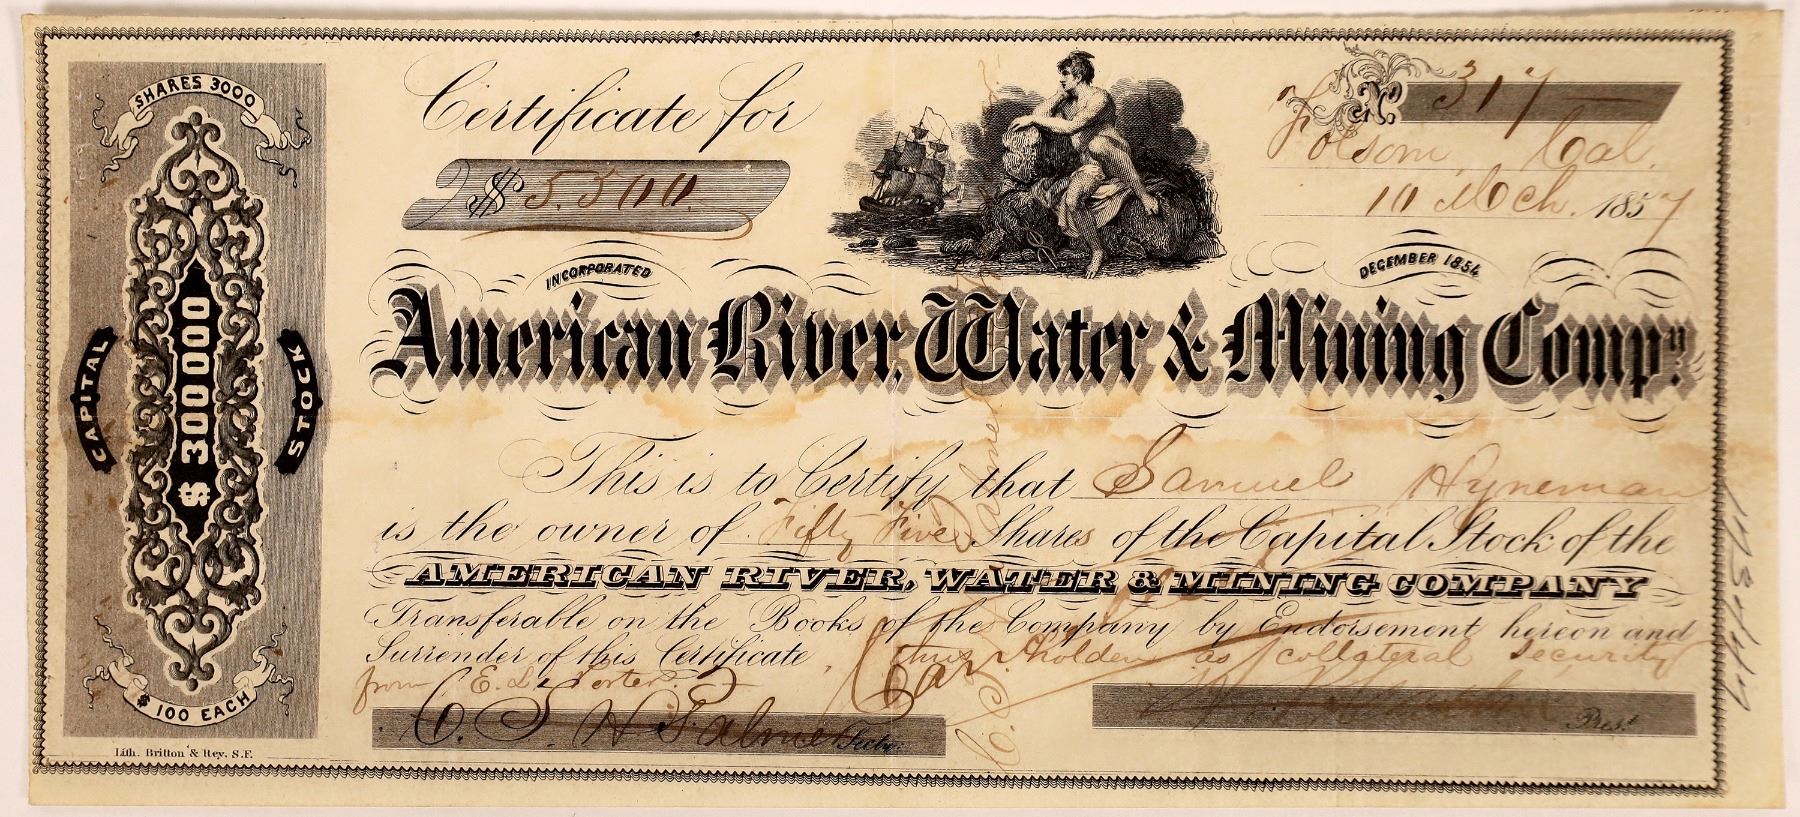 SHARES 3000
CAPITAL
$ 300000
STOCK
$ 100 EACH
Lith. Britton & Rey. S.F.
Certificate for
$ 5.500.
No. 317
Folsom, Cal.
10 Mch. 1857
INCORPORATED
DECEMBER 1854
American River, Water & Mining Compy.
This is to Certify that Samuel Hyneman
is the owner of Fifty Five Shares of the Capital Stock of the
AMERICAN RIVER, WATER & MINING COMPANY
Transferable on the Books of the Company by Endorsement hereon and
Surrender of this Certificate, thus holden as collateral security
from E. L. Porter.
Secty.
Prest.